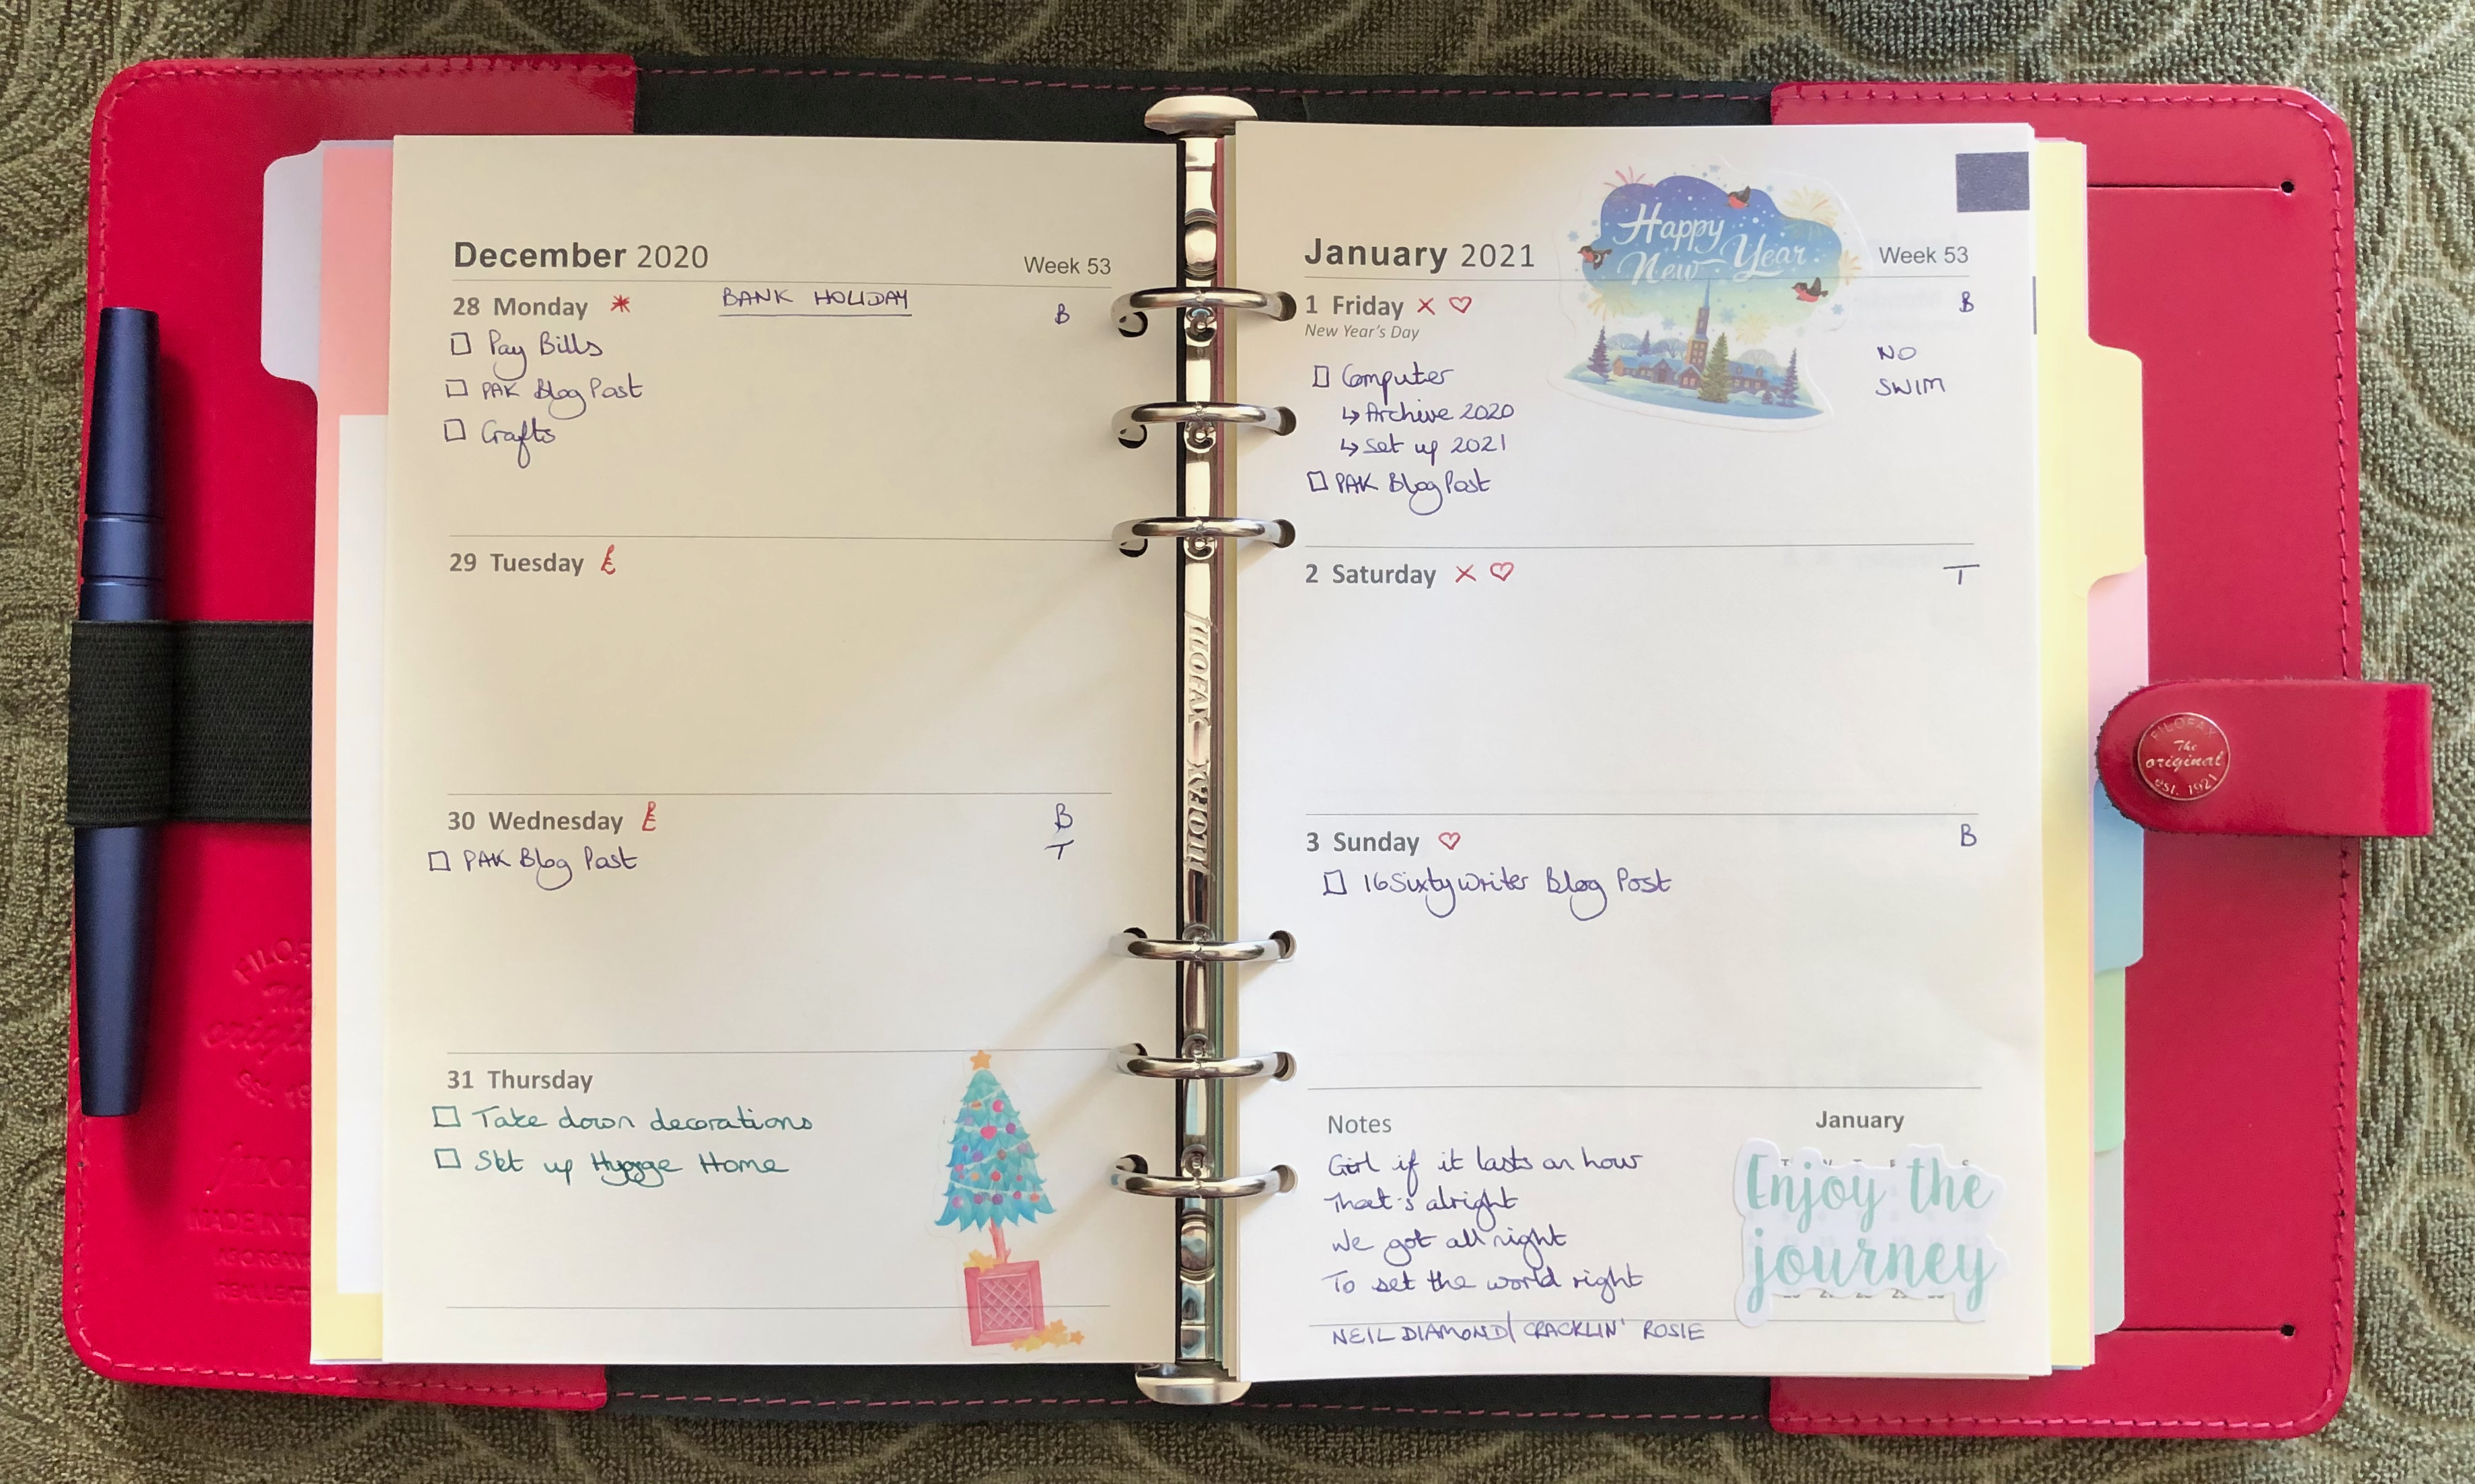 December 2020
Week 53
28 Monday * BANK HOLIDAY B
☐ Pay Bills
☐ PAK Blog Post
☐ Crafts
29 Tuesday £
30 Wednesday £ B
T
☐ PAK Blog Post
31 Thursday
☐ Take down decorations
☐ Set up Hygge Home
FILOFAX
FILOFAX
January 2021
Happy
New Year
Week 53
1 Friday × ♡ B
New Year's Day
NO
SWIM
☐ Computer
↳ Archive 2020
↳ Set up 2021
☐ PAK Blog Post
2 Saturday × ♡ T
3 Sunday ♡ B
☐ 16Sixtywriter Blog Post
Notes
January
Girl if it lasts an hour
That's alright
We got all night
To set the world right
NEIL DIAMOND/CRACKLIN' ROSIE
Enjoy the
journey
FILOFAX
The
original
est. 1921
MADE IN